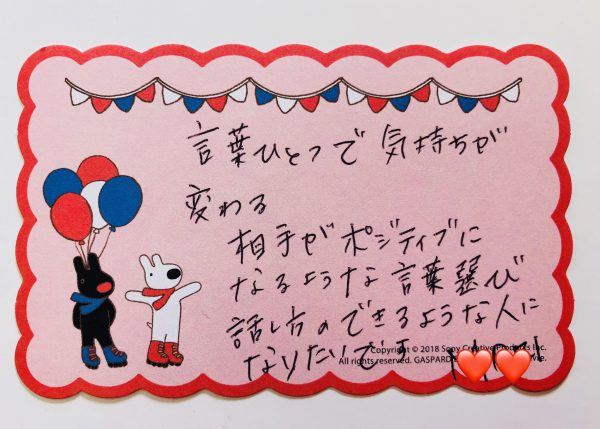 言葉ひとつで気持ちが
変わる
相手がポジティブに
なるような言葉選び
話し方のできるような人に
なりたいです
Copyright © 2018 Sony Creative Products Inc.
All rights reserved. GASPARD